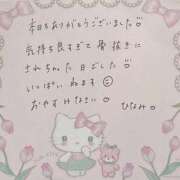 本日もありがとうございました♡
気持ち良すぎて骨抜きに
されちゃった日でした♡
いっぱいねます☺
おやすみなさい♡
ひなみ♡